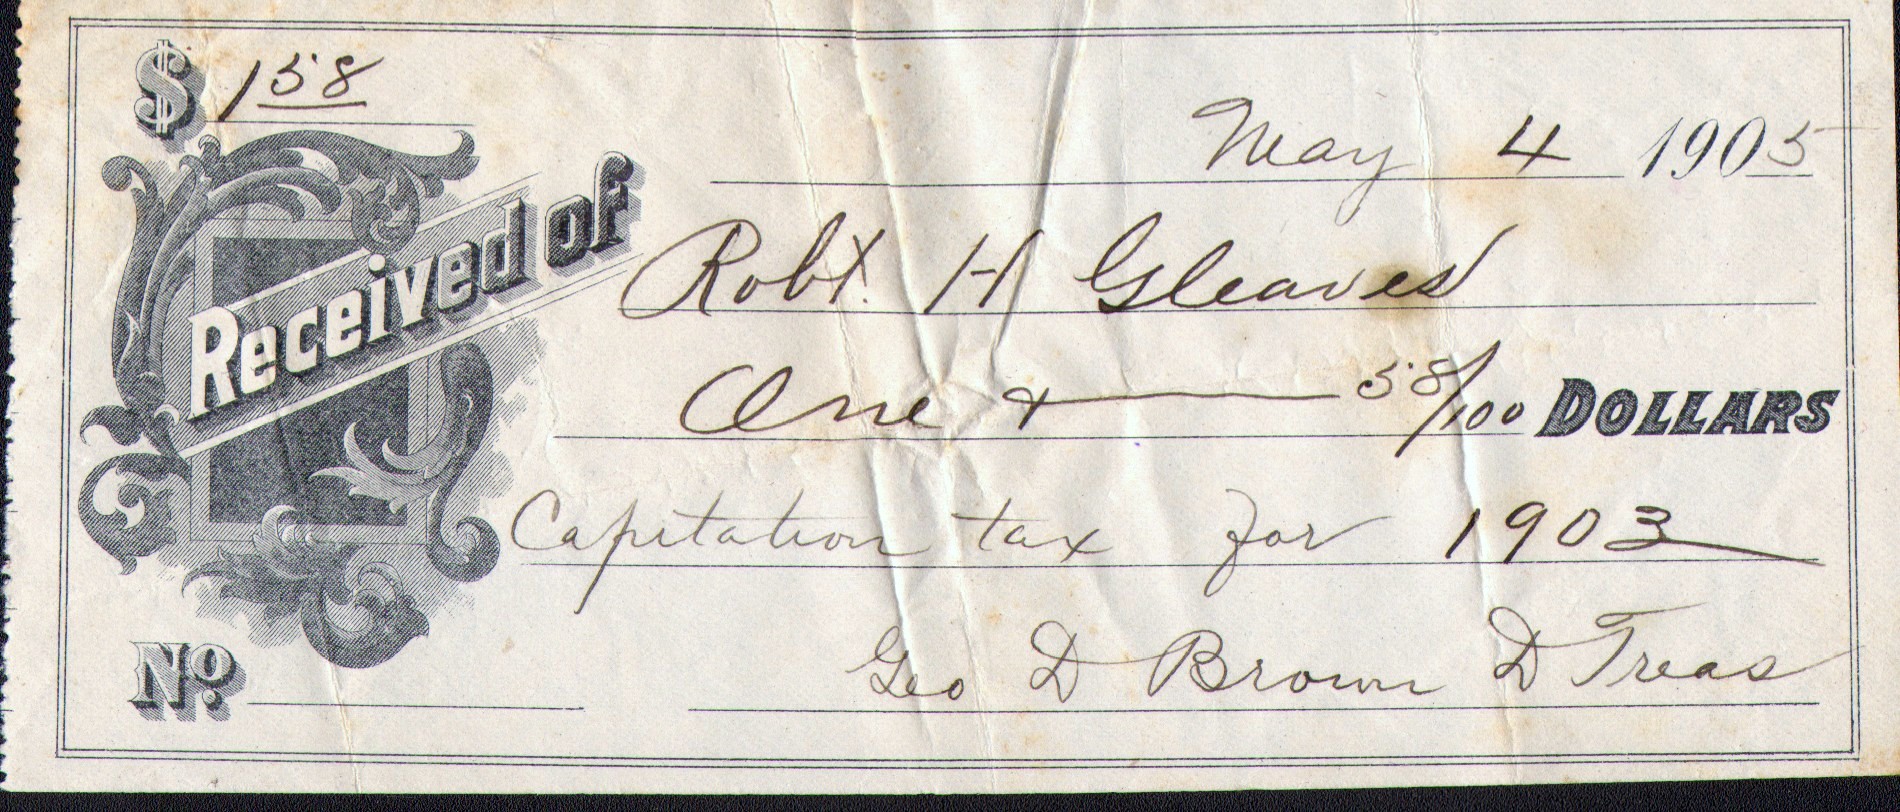 $ 1 58
May 4 1905
Received of Robt. H Gleaves
One + 58/100 DOLLARS
Capitation tax for 1903
No. Geo D Brown D Treas